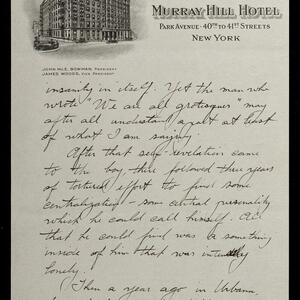 MURRAY HILL HOTEL
PARK AVENUE · 40TH TO 41ST STREETS
NEW YORK
JOHN McE. BOWMAN, PRESIDENT
JAMES WOODS, VICE PRESIDENT
insanity in itself. Yet the man who
wrote "We are all grotesques" may
after all understand at least
of what I am saying.
After that self-revelation came
to the boy there followed three years
of tortured effort to find some
centralization - some central personality
which he could call himself. All
that he could find was a something
inside of him that was intensely
lonely.
Then a year ago in Urbana